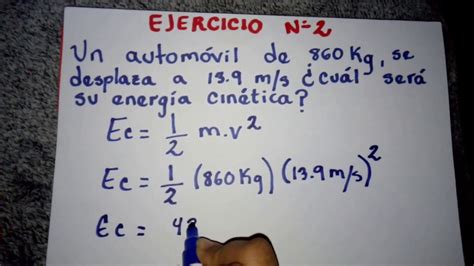 EJERCICIO Nº2
Un automóvil de 860 Kg, se
desplaza a 13.9 m/s ¿cuál será
su energía cinética?
Ec = 1/2 m.v²
Ec = 1/2 (860Kg) (13.9m/s)²
Ec = 43